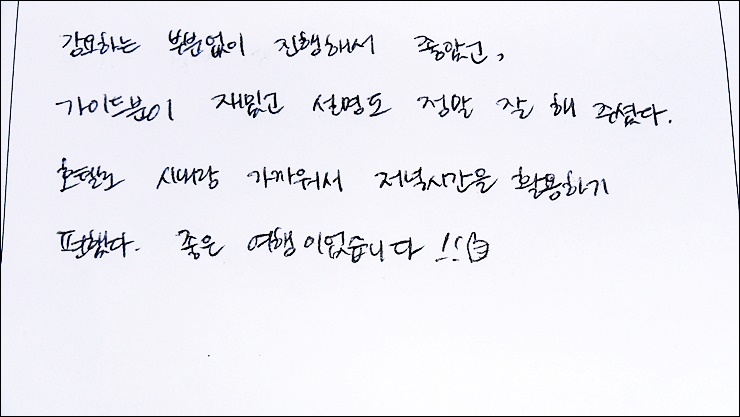 강요하는 부분없이 진행해서 좋았고,
가이드분이 재밌고 설명도 정말 잘 해 주셨다.
호텔도 시내랑 가까워서 저녁시간을 활용하기
편했다. 좋은 여행이었습니다 !!